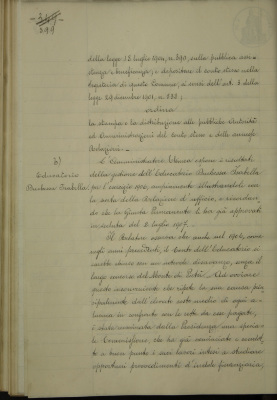 299
della legge 18 luglio 1904, n. 390, sulla pubblica assi-
stenza e beneficenza; e depositare il conto stesso nella
segreteria di questo Comune, ai sensi dell'art. 3 della
legge 29 dicembre 1901, n. 532;
ordina
la stampa e la distribuzione alle pubbliche Autorità
ed Amministrazioni del conto stesso e delle annesse
Relazioni.
3)
Educatorio
Isabella
L'Amministratore espone i risultati
della gestione dell'Educatorio Isabella
per l'esercizio 1906, ampiamente illustrandoli con
la scorta della Relazione di ufficio, e ricordan-
do che la Giunta Permanente li ha già approvati
in seduta del 2 luglio 1907.
Il Relatore osserva che anche nel 1906, come
negli anni precedenti, il Conto dell'Educatorio si
è chiuso con un notevole disavanzo, a
largo onere del Monte di Pietà. Ad ovviare
questo inconveniente che ripete la sua causa prin-
cipalmente dall'elevato costo medio di ogni a-
lunna in confronto con la retta da esse pagata,
è stata nominata dalla Presidenza una specia-
le Commissione, che ha già cominciato e condot-
to a buon punto i suoi lavori intesi a studiare
opportuni provvedimenti d'indole finanziaria,